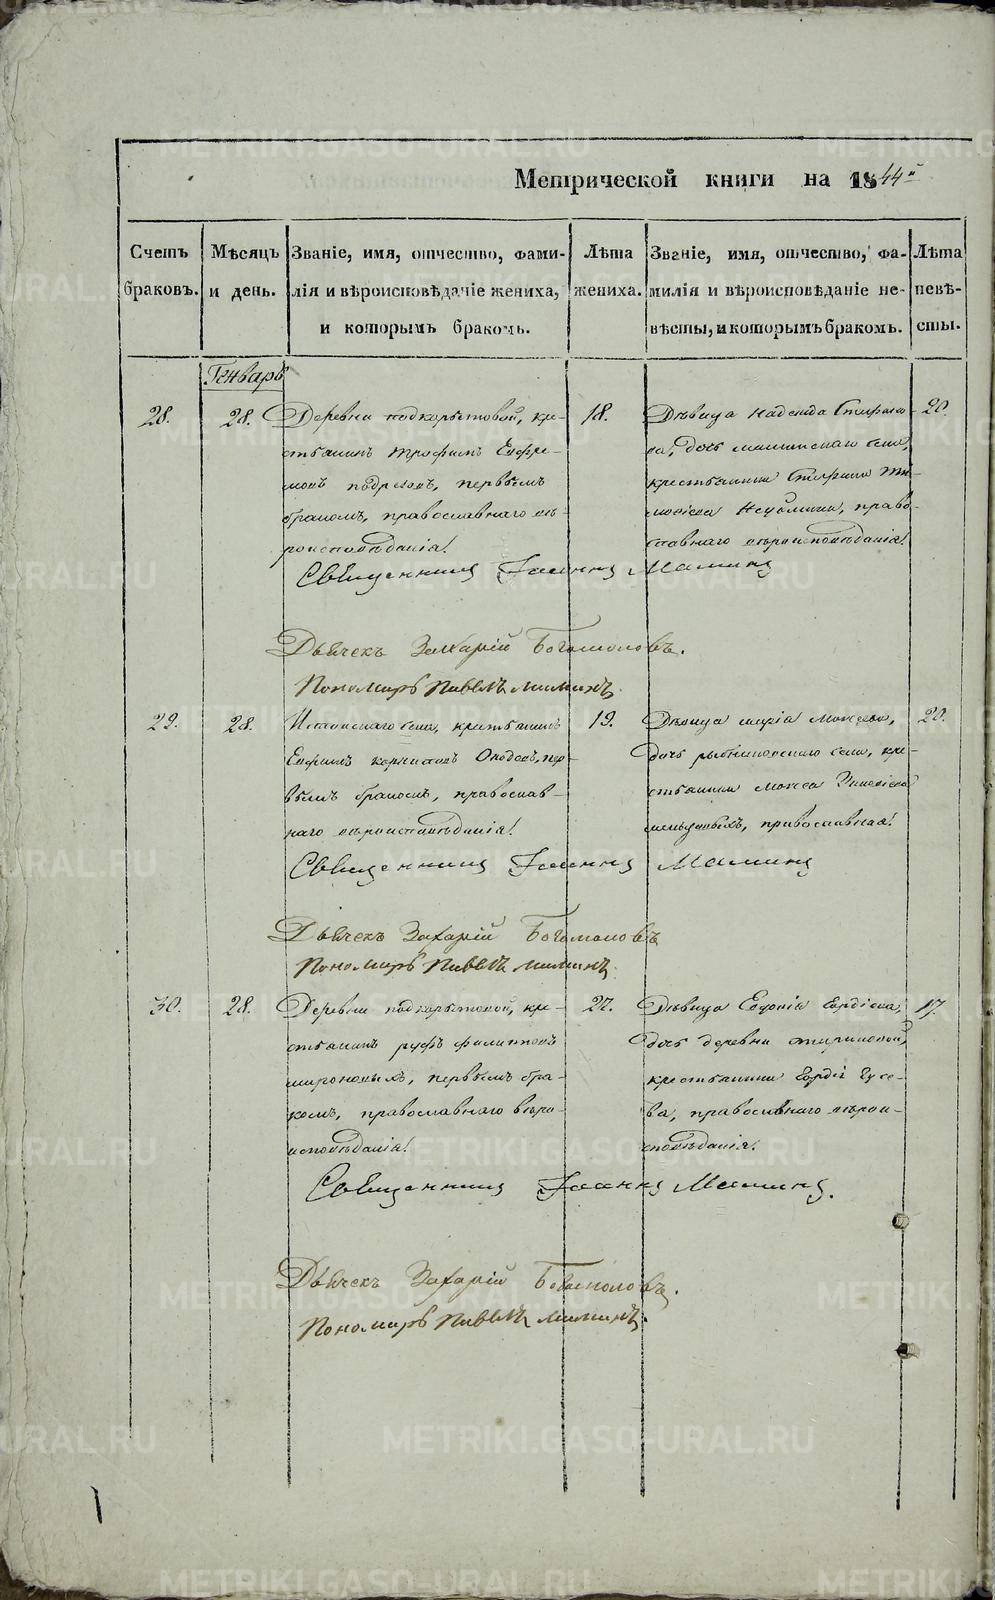 Метрической книги на 1844й
Счетъ браковъ.
Мѣсяцъ и день.
Званіе, имя, отчество, фами-
лія и вѣроисповѣданіе жениха,
и которымъ бракомъ.
Лѣта жениха.
Званіе, имя, отчество, фа-
милія и вѣроисповѣданіе не-
вѣсты, и которымъ бракомъ.
Лѣта невѣ-
сты.
Генварь
28.
28.
Деревни подкорытовой, кре-
стьянинъ Трофимъ Ефре-
мовъ, первымъ
бракомъ, православнаго вѣ-
роисповѣданія.
18.
Дѣвица Надежда Стефано-
ва, дочь села,
крестьянина Стефана
право-
славнаго вѣроисповѣданія.
20.
Священникъ Іоаннъ Маминъ
Дьячекъ Захарій Богомоловъ.
Пономарь Павелъ Маминъ.
29.
28.
села, крестьянинъ
Ефимъ пер-
вымъ бракомъ, православ-
наго вѣроисповѣданія.
19.
Дѣвица Марія
дочь села, кре-
стьянина
православная.
20.
Священникъ Іоаннъ Маминъ
Дьячекъ Захарій Богомоловъ
Пономарь Павелъ Маминъ.
30.
28.
Деревни подкорытовой, кре-
стьянинъ Руфъ Филиповъ
Мироновыхъ, первымъ бра-
комъ, православнаго вѣро-
исповѣданія.
22.
Дѣвица Евдокія Гордѣева,
дочь деревни
крестьянина Гордѣя Гусе-
ва, православнаго вѣрои-
сповѣданія.
17.
Священникъ Іоаннъ Маминъ.
Дьячекъ Захарій Богомоловъ.
Пономарь Павелъ Маминъ.
METRIKI.GASO-URAL.RU